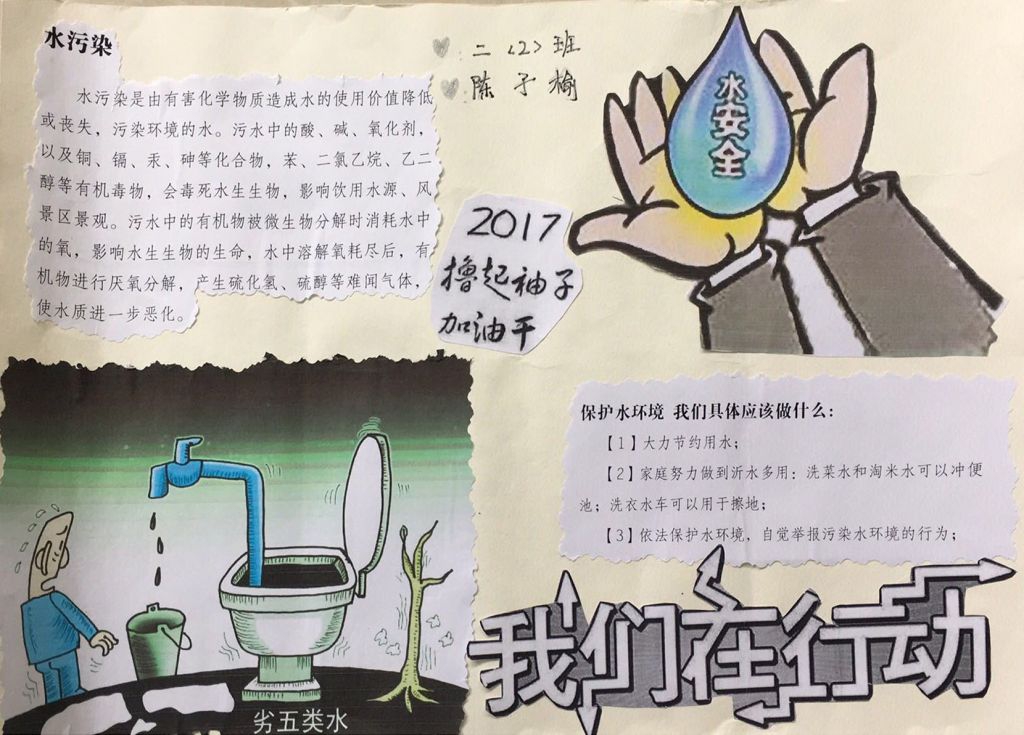 水污染
水污染是由有害化学物质造成水的使用价值降低
或丧失，污染环境的水。污水中的酸、碱、氧化剂，
以及铜、镉、汞、砷等化合物，苯、二氯乙烷、乙二
醇等有机毒物，会毒死水生生物，影响饮用水源、风
景区景观。污水中的有机物被微生物分解时消耗水中
的氧，影响水生生物的生命，水中溶解氧耗尽后，有
机物进行厌氧分解，产生硫化氢、硫醇等难闻气体，
使水质进一步恶化。
二〈2〉班
陈子榆
水安全
2017
撸起袖子
加油干
劣五类水
保护水环境 我们具体应该做什么：
【1】大力节约用水；
【2】家庭努力做到沂水多用：洗菜水和淘米水可以冲便
池；洗衣水车可以用于擦地；
【3】依法保护水环境，自觉举报污染水环境的行为；
我们在行动